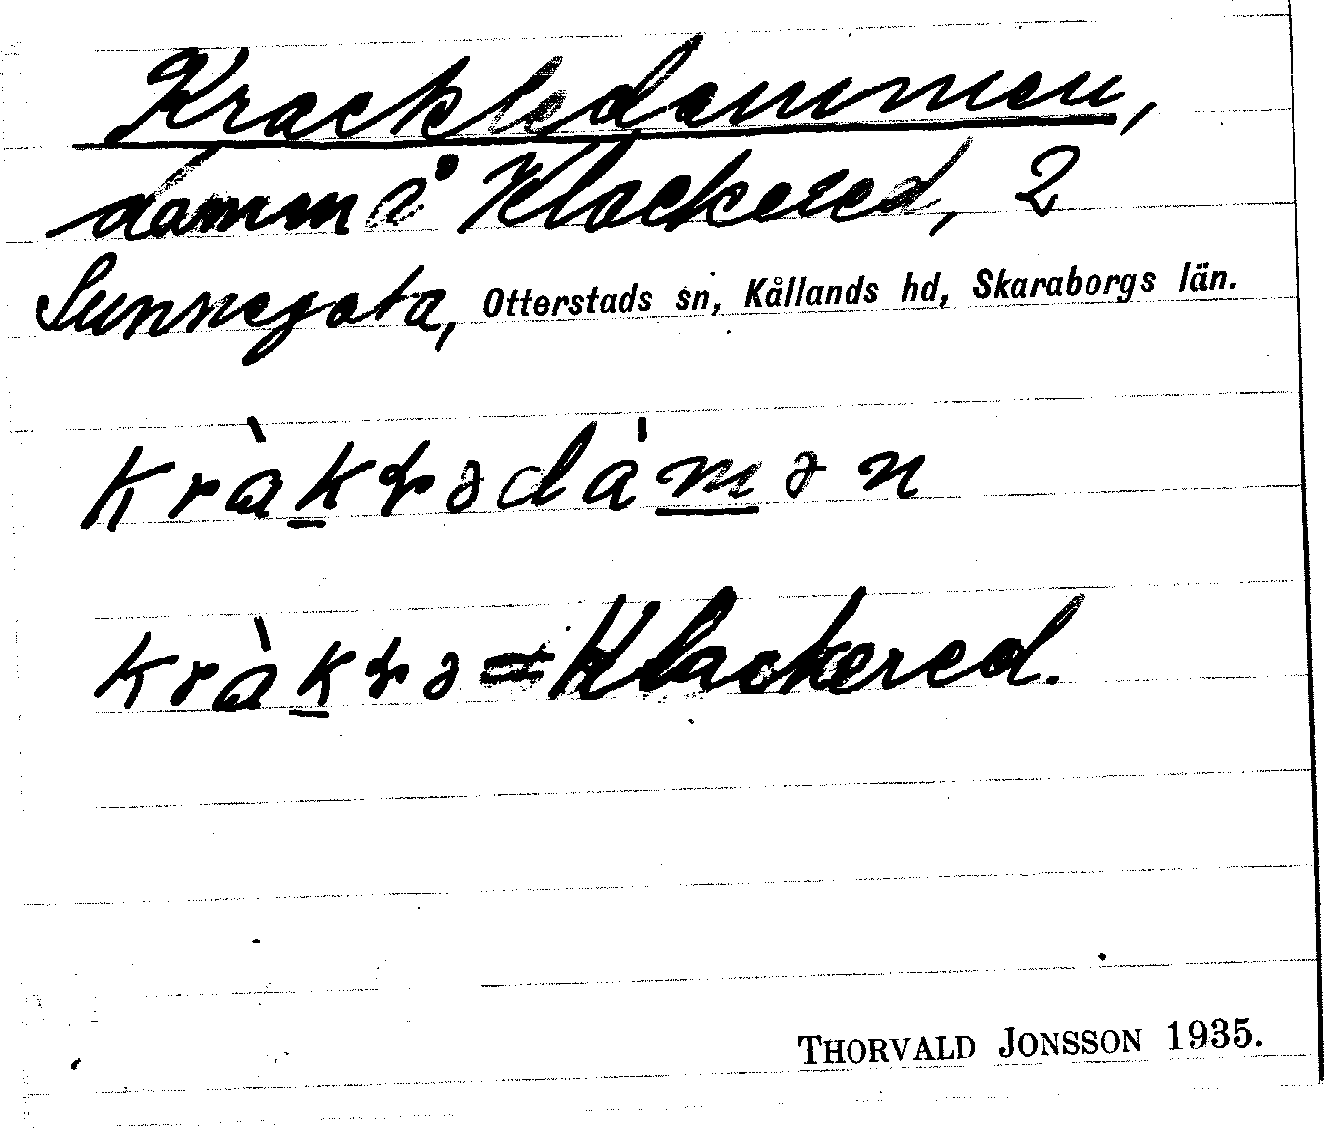 Krackledammen,
damm å Klackered, 2
Sunnegata, Otterstads sn, Kållands hd, Skaraborgs län.
kràkɽədámən
kràkɽə = Klackered.
THORVALD JONSSON 1935.